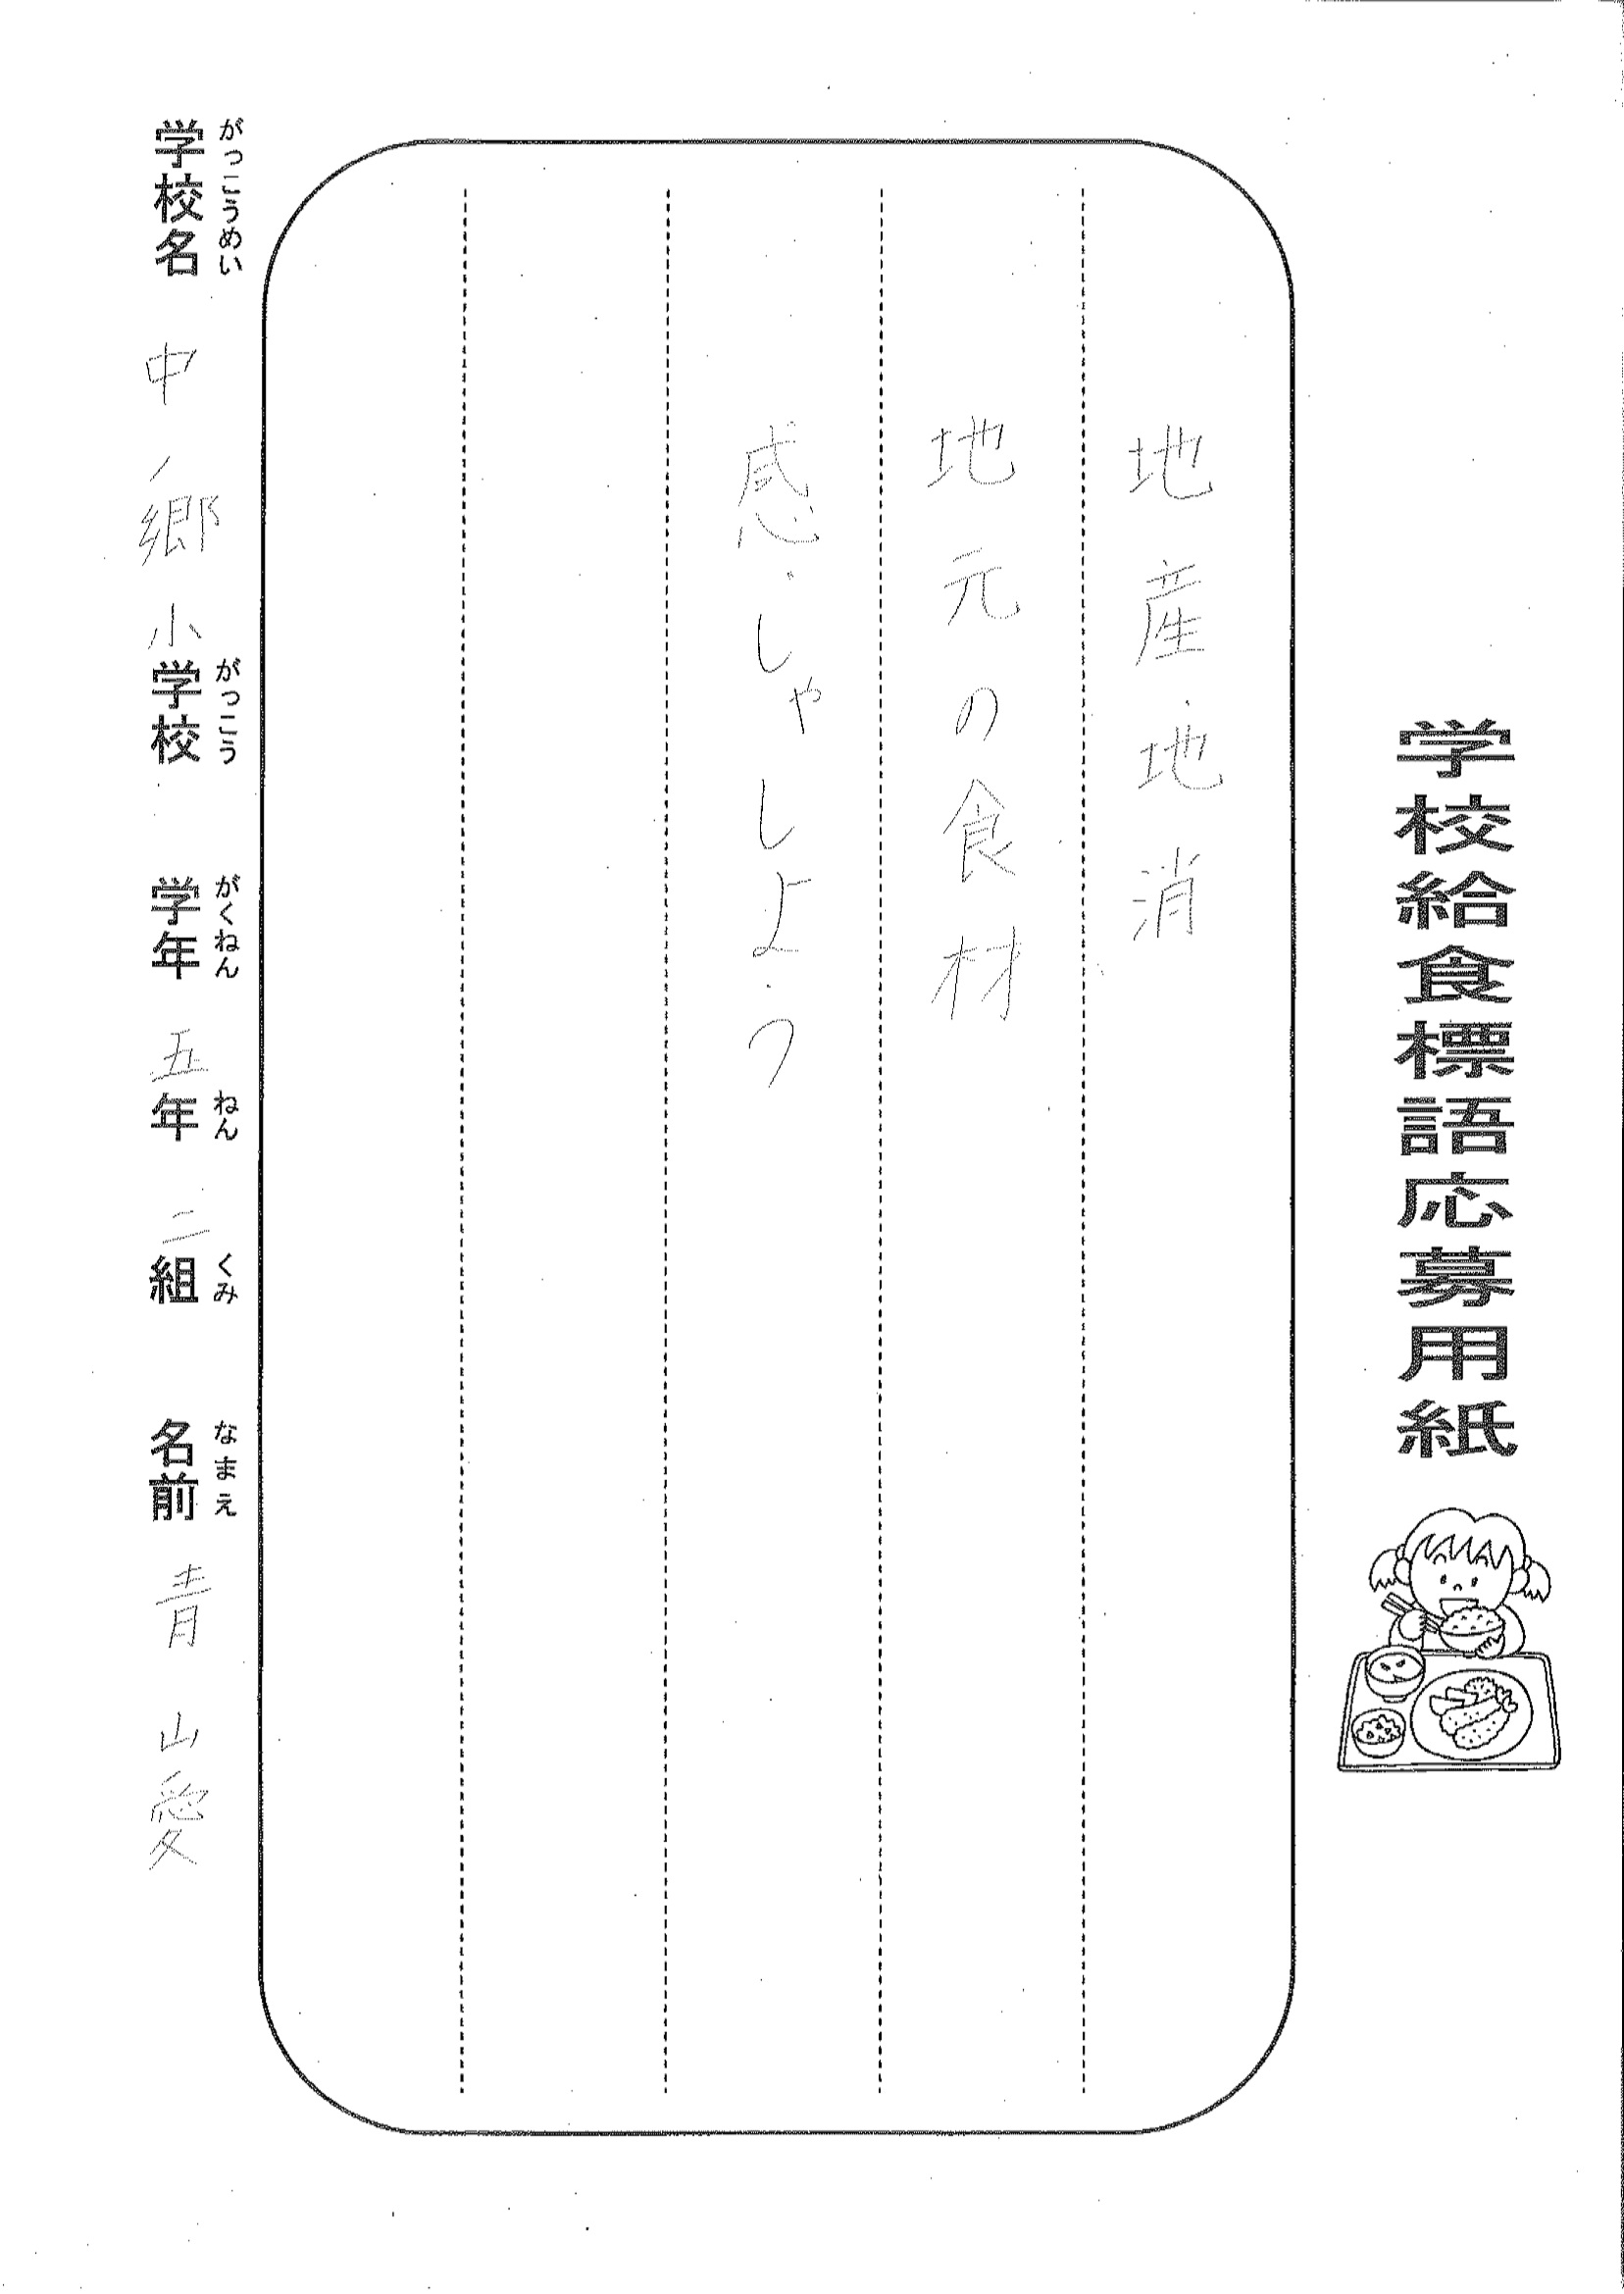 学校給食標語応募用紙
地産地消
地元の食材
感しゃしよう
がっこうめい がっこう がくねん ねん くみ なまえ
学校名 中郷小学校 学年 五年 二組 名前 青山愛